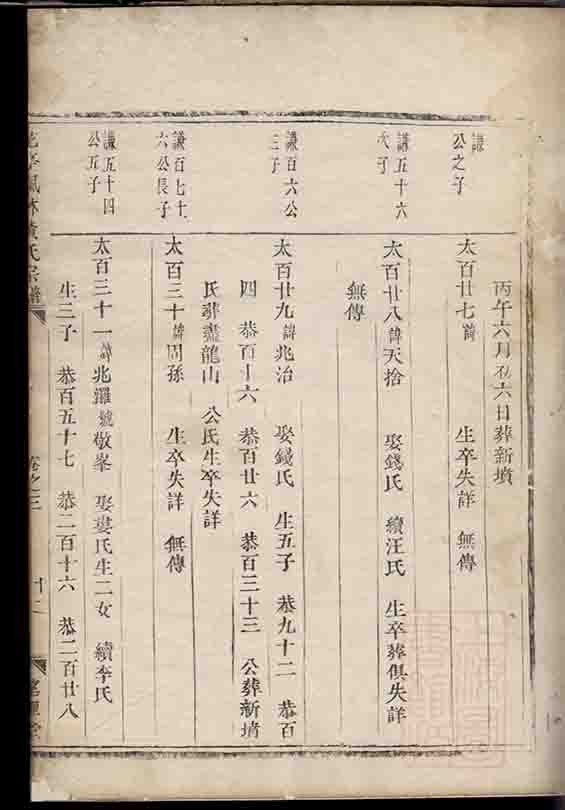 丙午六月初六日葬新墳
謙
公之子
太百廿七諱 生卒失詳 無傳
謙五十六
次子
太百廿八諱天捨 娶錢氏 續汪氏 生卒葬俱失詳
無傳
謙百六公
三子
太百廿九諱兆治 娶錢氏 生五子 恭九十二 恭百
四 恭百十六 恭百廿六 恭百三十三 公葬新墳
氏葬盡龍山 公氏生卒失詳
謙百七十
六公長子
太百三十諱周孫 生卒失詳 無傳
謙五十四
公五子
太百三十一諱兆羅號敬峯 娶婁氏生二女 續李氏
生三子 恭百五十七 恭二百十六 恭二百廿八
黃氏宗譜
卷之三
十二